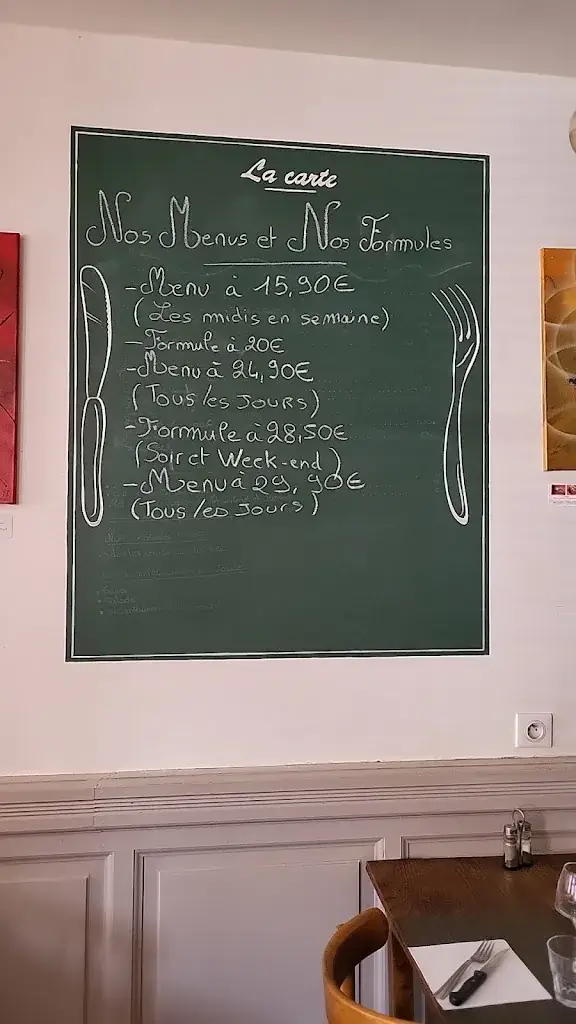 La carte
Nos Menus et Nos Formules
- Menu à 15,90€
(Les midis en semaine)
- Formule à 20€
- Menu à 24,90€
(Tous les jours)
- Formule à 28,50€
(Soir et Week-end)
- Menu à 29,90€
(Tous les jours)